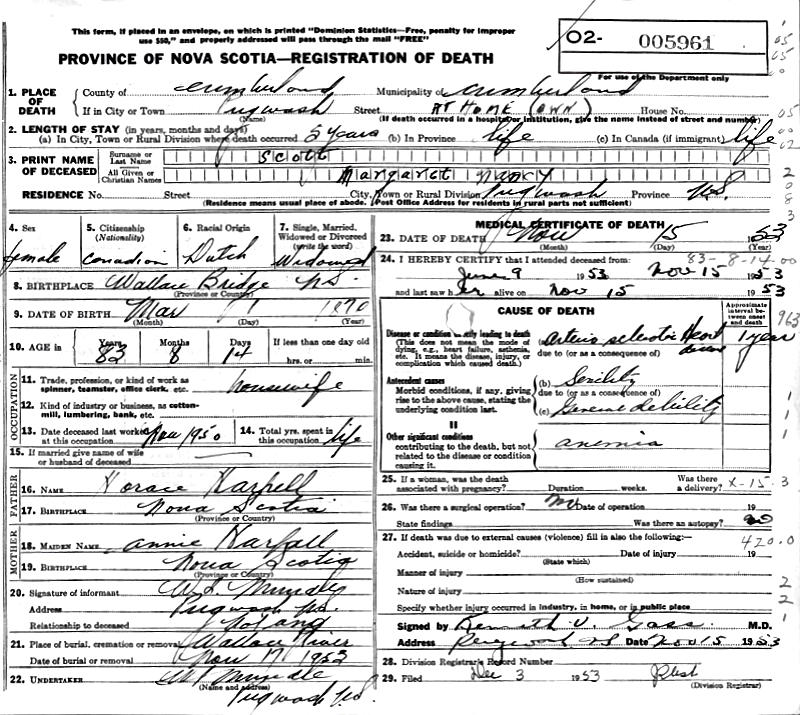 This form, if placed in an envelope, on which is printed "Dominion Statistics—Free, penalty for improper
use $50," and properly addressed will pass through the mail "FREE"
O2- 005961
For use of the Department only
PROVINCE OF NOVA SCOTIA—REGISTRATION OF DEATH
1. PLACE OF DEATH
County of Cumberland Municipality of Cumberland
If in City or Town Pugwash Street AT HOME (OWN) House No.
(Name) (If death occurred in a hospital or institution, give the name instead of street and number)
2. LENGTH OF STAY (in years, months and days)
(a) In City, Town or Rural Division where death occurred 5 years (b) In Province life (c) In Canada (if immigrant) life
3. PRINT NAME OF DECEASED
Surname or Last Name Scott
All Given or Christian Names Margaret Nancy
RESIDENCE No. Street City, Town or Rural Division Pugwash Province N.S.
(Residence means usual place of abode. Post Office Address for residents in rural parts not sufficient)
4. Sex female
5. Citizenship (Nationality) Canadian
6. Racial Origin Dutch
7. Single, Married, Widowed or Divorced (write the word) Widowed
8. BIRTHPLACE Wallace Bridge N.S.
(Province or Country)
9. DATE OF BIRTH Mar 1 1870
(Month) (Day) (Year)
10. AGE in Years 83 Months 8 Days 14 If less than one day old
hrs. or min.
OCCUPATION
11. Trade, profession, or kind of work as spinner, teamster, office clerk, etc. housewife
12. Kind of industry or business, as cotton-mill, lumbering, bank, etc.
13. Date deceased last worked at this occupation Nov 1950
14. Total yrs. spent in this occupation life
15. If married give name of wife or husband of deceased
FATHER
16. NAME Horace Harpell
17. BIRTHPLACE Nova Scotia
(Province or Country)
MOTHER
18. MAIDEN NAME Annie Harpell
19. BIRTHPLACE Nova Scotia
(Province or Country)
20. Signature of informant
Address Pugwash N.S.
Relationship to deceased
21. Place of burial, cremation or removal Wallace River
Date of burial or removal Nov 17 1953
22. UNDERTAKER
(Name and address) Pugwash N.S.
MEDICAL CERTIFICATE OF DEATH
23. DATE OF DEATH Nov 15 1953
(Month) (Day) (Year)
24. I HEREBY CERTIFY that I attended deceased from: 83-8-14-00
June 9 1953 Nov 15 1953
and last saw her alive on Nov 15 1953
CAUSE OF DEATH
Approximate interval between onset and death
Disease or condition directly leading to death
(This does not mean the mode of dying, e.g., heart failure, asthenia, etc. It means the disease, injury, or complication which caused death.)
(a) arterio sclerotic Heart disease 1 year
due to (or as a consequence of)
Antecedent causes
Morbid conditions, if any, giving rise to the above cause, stating the underlying condition last.
(b) Senility
due to (or as a consequence of)
(c) General debility
II
Other significant conditions
contributing to the death, but not related to the disease or condition causing it.
anemia
25. If a woman, was the death associated with pregnancy? Duration weeks. Was there a delivery? X-15.3
26. Was there a surgical operation? no Date of operation 19
State findings Was there an autopsy? no
27. If death was due to external causes (violence) fill in also the following:—
420.0
Accident, suicide or homicide? Date of injury 19
(State which)
Manner of injury
(How sustained)
Nature of injury
Specify whether injury occurred in industry, in home, or in public place
Signed by Kenneth V. Gass M.D.
Address Date Nov 15 1953
28. Division Registrar's Record Number
29. Filed Dec 3 1953
(Division Registrar)